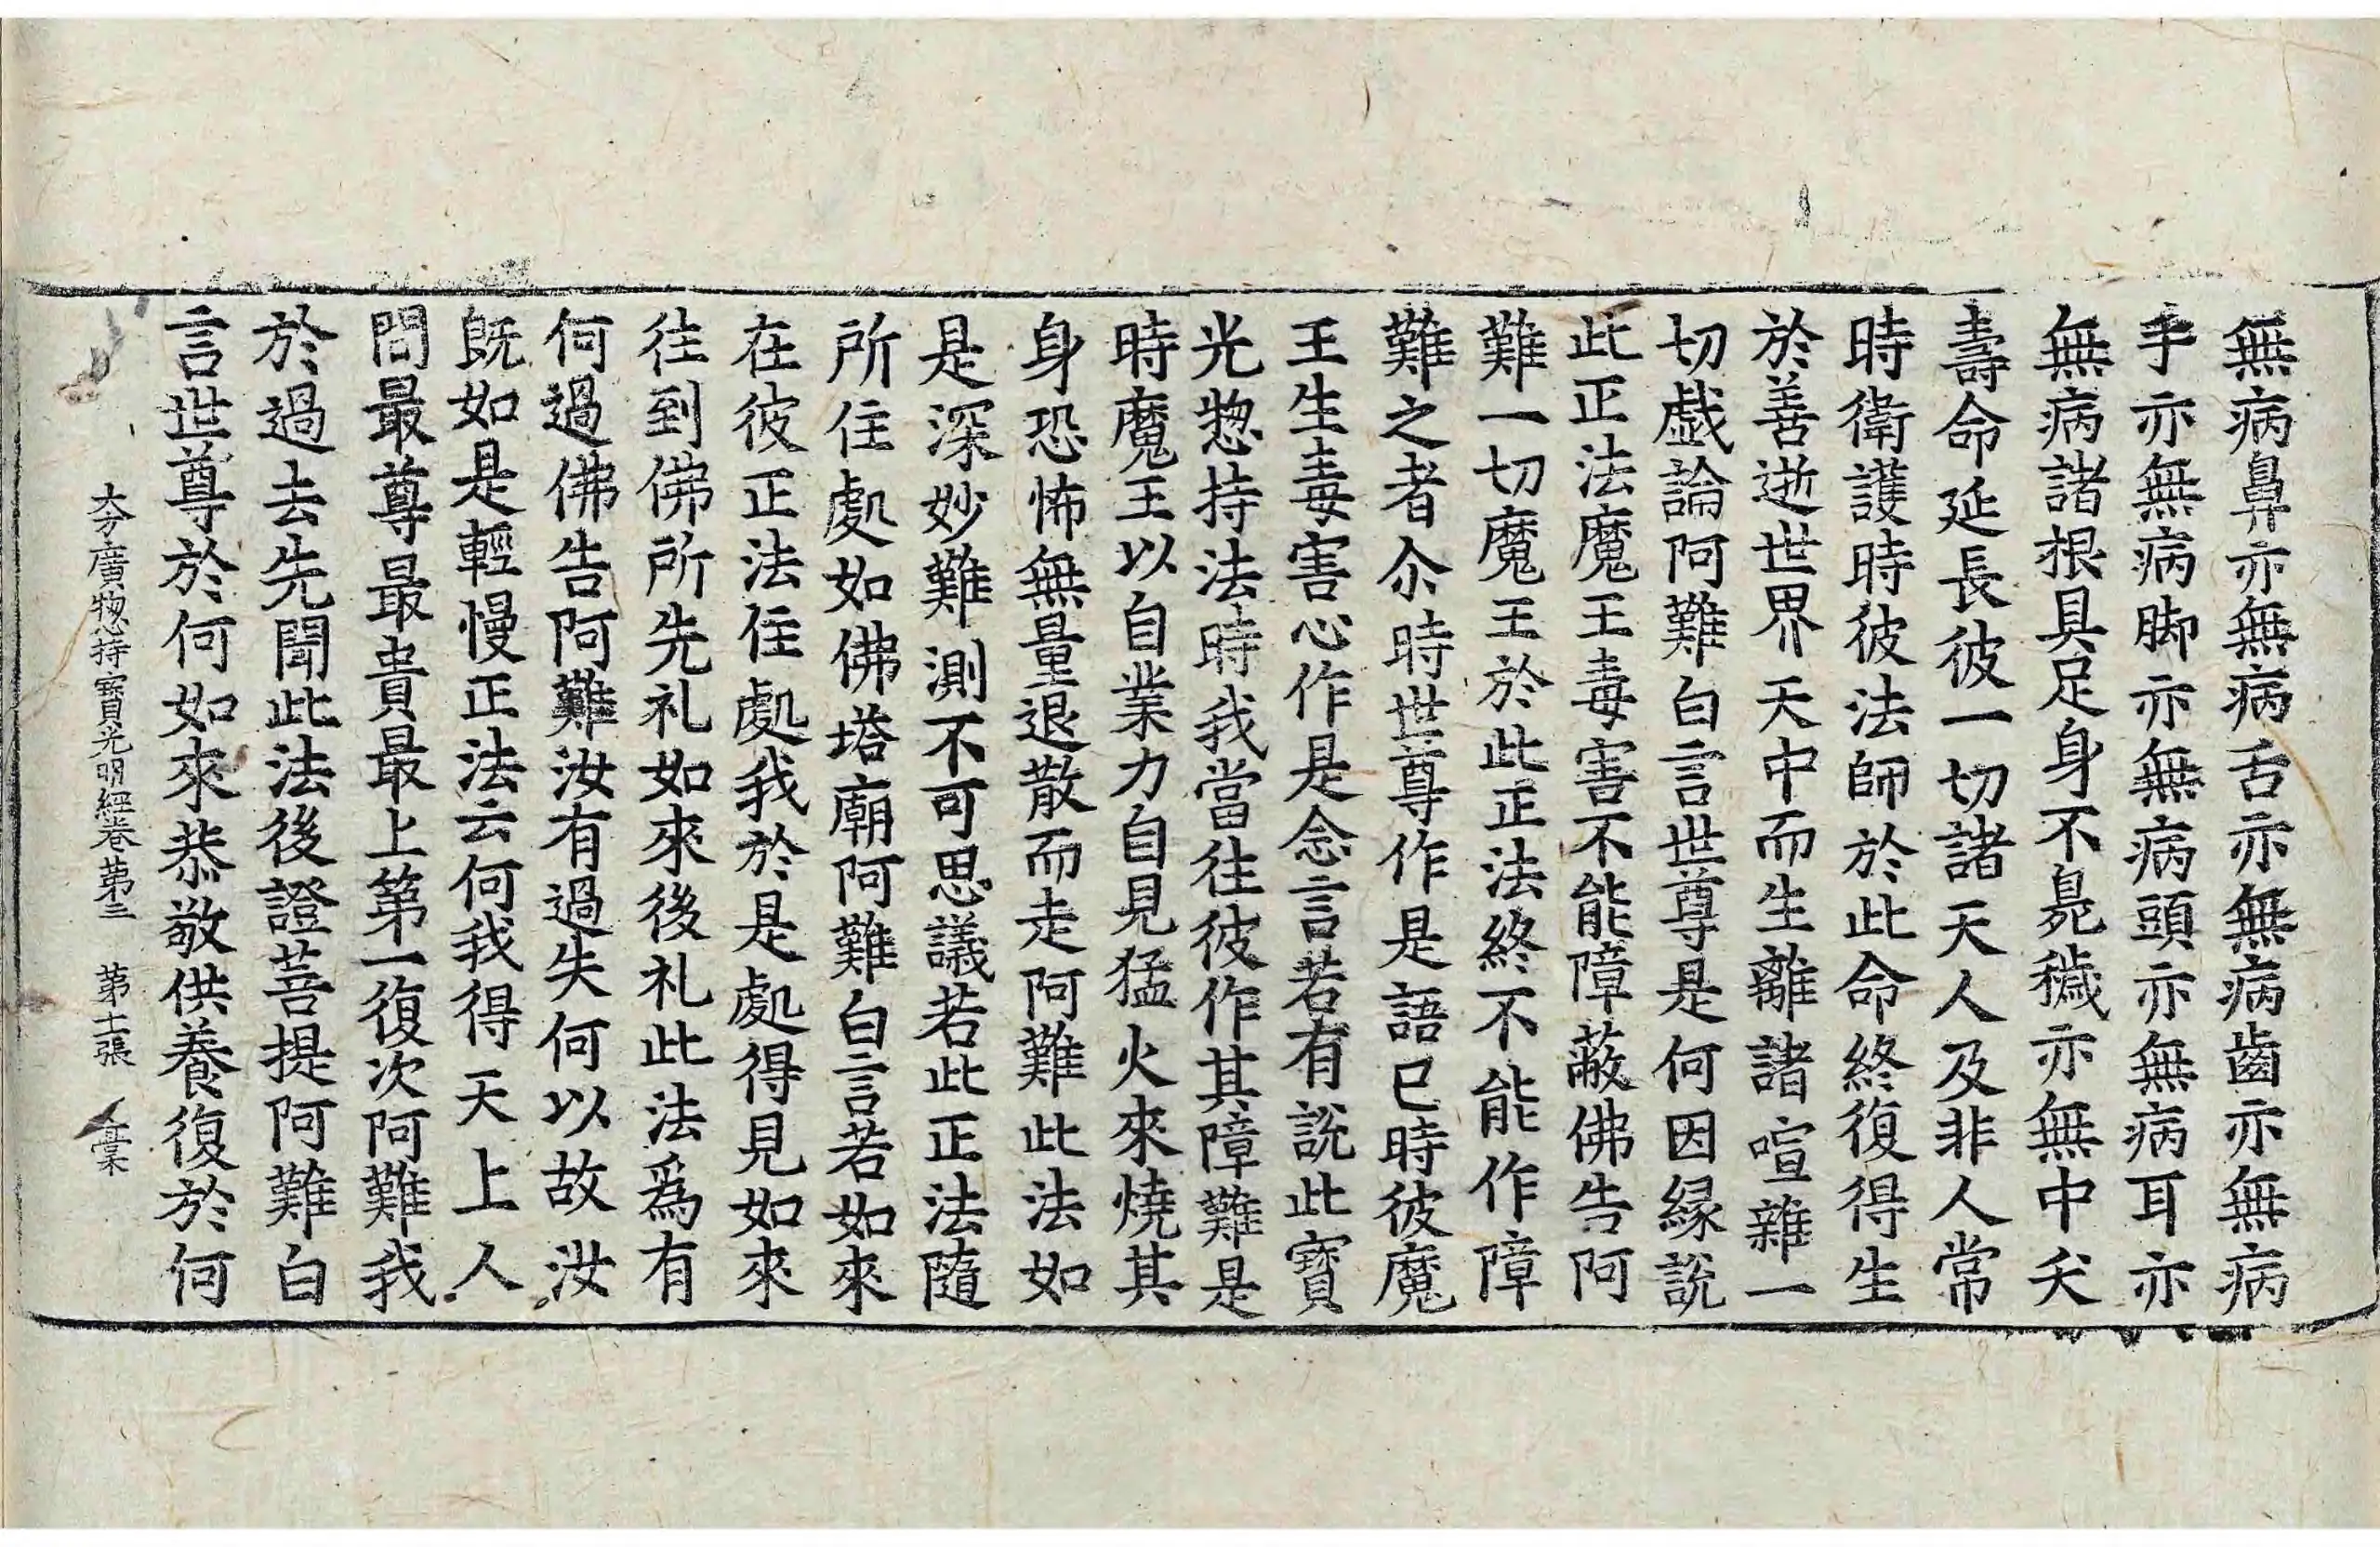 無病鼻亦無病舌亦無病齒亦無病
手亦無病脚亦無病頭亦無病耳亦
無病諸根具足身不臰穢亦無中夭
壽命延長彼一切諸天人及非人常
時衛護時彼法師於此命終復得生
於善逝世界天中而生離諸喧雜一
切戯論阿難白言世尊是何因縁說
此正法魔王毒害不能障蔽佛告阿
難一切魔王於此正法終不能作障
難之者尒時世尊作是語已時彼魔
王生毒害心作是念言若有說此寶
光惣持法時我當往彼作其障難是
時魔王以自業力自見猛火來燒其
身恐怖無量退散而走阿難此法如
是深妙難測不可思議若此正法隨
所住處如佛塔廟阿難白言若如來
在彼正法住處我於是處得見如來
往到佛所先礼如來後礼此法爲有
何過佛告阿難汝有過失何以故汝
旣如是輕慢正法云何我得天上人
間最尊最貴最上第一復次阿難我
於過去先聞此法後證菩提阿難白
言世尊於何如來恭敬供養復於何
大方廣惣持寳光明經卷苐三 苐十二張 稾